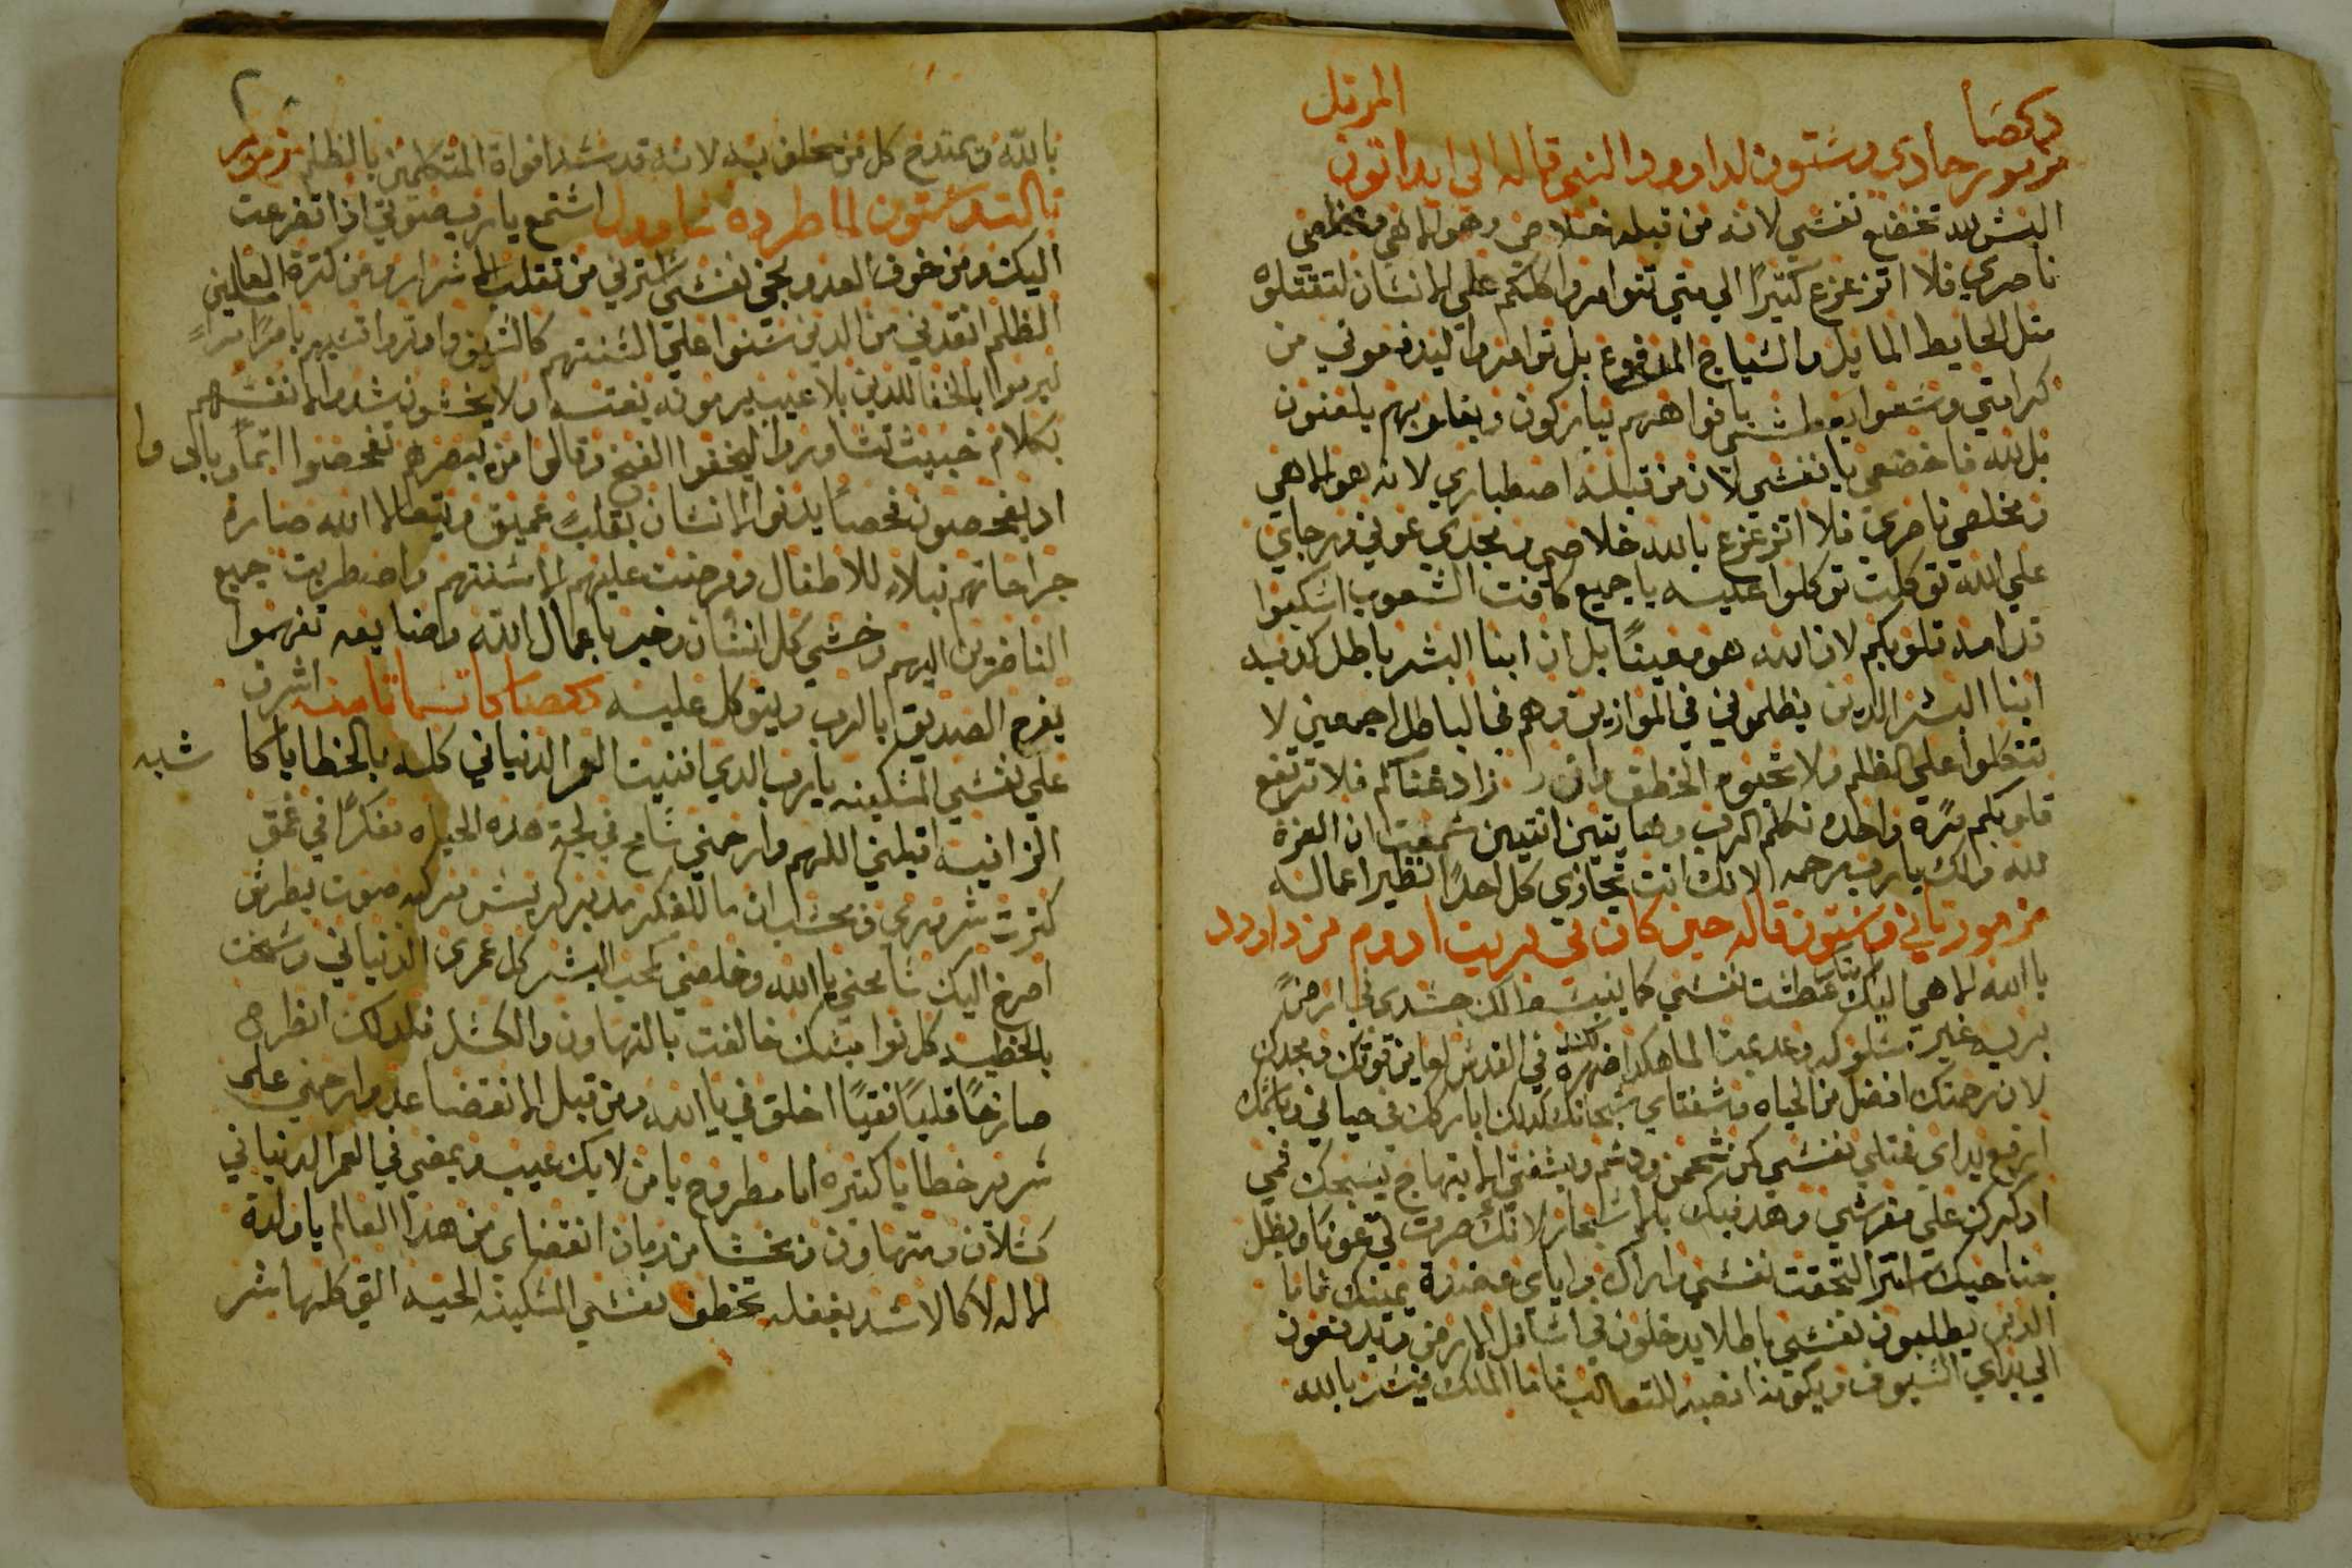 المرتل
دكصا
مزمور حادي وستون لداوود النبي قاله الي ايداتون
اليس لله تخضع نفسي لانه من قبله خلاصي وهو الاهي ومخلصي
ناصري فلا اتزعزع كثيرًا الي متي تتوامروا كلكم علي الانسان لتقتلوه
مثل الحايط المايل والسياج المدفوع بل توامروا ليدفعوني من
كرامتي وسعوا بعطش بافواههم يباركون وبقلوبهم يلعنون
بل لله فاخضعي يا نفسي لان من قبله اصطباري لانه هو الاهي
ومخلصي ناصري فلا اتزعزع بالله خلاصي ومجدي عوني ورجاي
علي الله توكلت توكلوا عليه يا جميع كافت الشعوب اسكبوا
قدامه قلوبكم لان الله هو معينًا بل ان ابنا البشر باطل كدبه
ابنا البشر الدين يظلموني في الموازين وهم في الباطل اجمعين لا
تتكلوا علي الظلم ولا تحبوا الخطف وان زاد غناكم فلا ترتفع
قلوبكم مرة واحده تكلم الرب وهايتين اتنين سمعت ان العزة
لله ولك يارب الرحمه لانك انت تجازي كل احدًا نظير اعماله
مزمور تاني وستون قاله حين كان في بريت ادوم من داوود
يا الله الاهي اليك ابتكر عطشت نفسي كما يبس لك جسدي في ارضً
بريه غير مسلوكه وعديمت الما هكدا ظهرة لك في القدس لعاين قوتك ومجدك
لان رحمتك افضل من الحياه وشفتاي تسبحانك كدلك اباركك في حياتي وباسمك
ارفع يداي فتمتلي نفسي كمن شحمن ودسم وبشفتي الابتهاج يسبحك فمي
ادكرك علي مفرشي وهدفيك بالاسحار لانك صرت لي عونًا وبظل
جناحيك استتر التحقت نفسي وراك واياي عضدة يمينك فاما
الدين يطلبون نفسي باطلا يدخلون في اسافل الارض ويدفعون
الي يداي السيوف ويكونوا نصيبا للتعالب فاما الملك فيسر بالله
بالله ويمتدح كل من يحلف به لانه قد سد افواة المتكلمين بالظلم مزمور
تالت وستون لما طرده شاوول استمع يارب صوتي ادا تضرعت
اليك ومن خوف العدو نجي نفسي استرني من تقلب الاشرار ومن كترة العاملين
الظلم انقدني من الدين سنوا علي السنتهم كالسيف واوتروا قسيهم بامرًا مرًا
ليرموا بالخفا للدين بلا عيب يرمونه بغتسه ولا يخشون شددوا لانفسهم
بكلام خبيث تشاوروا ليخفوا الفخ وقالوا من يبصرهم تفحصوا اتمًا وبادوا
اد يفحصون فحصًا يدنوا الانسان بقلبً عميق ويتعالا الله صارة
جراحاتهم نبلاء للاطفال ومرضت عليهم السنتهم واضطربت جميع
الناضرين اليهم وخشي كل انسان وخبر باعمال الله وصنايعه تفهموا
يفرح الصديق بالرب ويتوكل عليه دكصا كاتسما تامنه اشرق
علي نفسي المسكينه يارب الدي افنيت العمر الدنياني كله بالخطايا كا شبه
الزانيه اقبلني اللهم وارحمني سابح في لجة هده الحياه مفكرًا في عمق
كترت شروري ومحتسب ان ما للفكر مدبر كبطرس مركه صوت بطرس
اصرخ اليك سامحني يا الله وخلصني كمحب البشر كل عمري الدنياني وسخت
بالخطيه كل نواميسك خالفت بالتهاون والكسل فلدلك انطرح
صارخًا قلبًا نقيًا اخلق في يا الله ومن قبل الانقضا عد وارحمني علي
شرور خطايا كتيره انا مطروح يا من لا بك عيب ويمضي في العمر الدنياني
كسلان ومتهاون وبخشا من زمان انقضاي من هدا العالم يا ولدة
الاله لا كالاسد بغفله تخطف نفسي المسكينه الحيه التي كلها شر